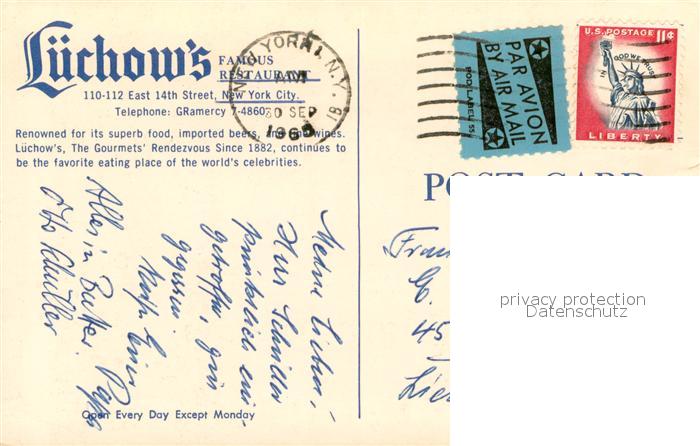 Lüchow's FAMOUS
RESTAURANT
110-112 East 14th Street, New York City.
Telephone: GRamercy 7-4860
Renowned for its superb food, imported beers, and fine wines.
Lüchow's, The Gourmets' Rendezvous Since 1882, continues to
be the favorite eating place of the world's celebrities.
NEW YORK, N.Y.
AM
30 SEP
1963
PAR AVION
BY AIR MAIL
POD LABEL 55
U.S. POSTAGE 11¢
IN GOD WE TRUST
LIBERTY
POST CARD
Meine Lieben,
Herr Schiller
pünktlich ein-
getroffen, gut
gegessen.
Euer
Papa
Alles in Butter
Otto Schiller
45
privacy protection
Datenschutz
Open Every Day Except Monday